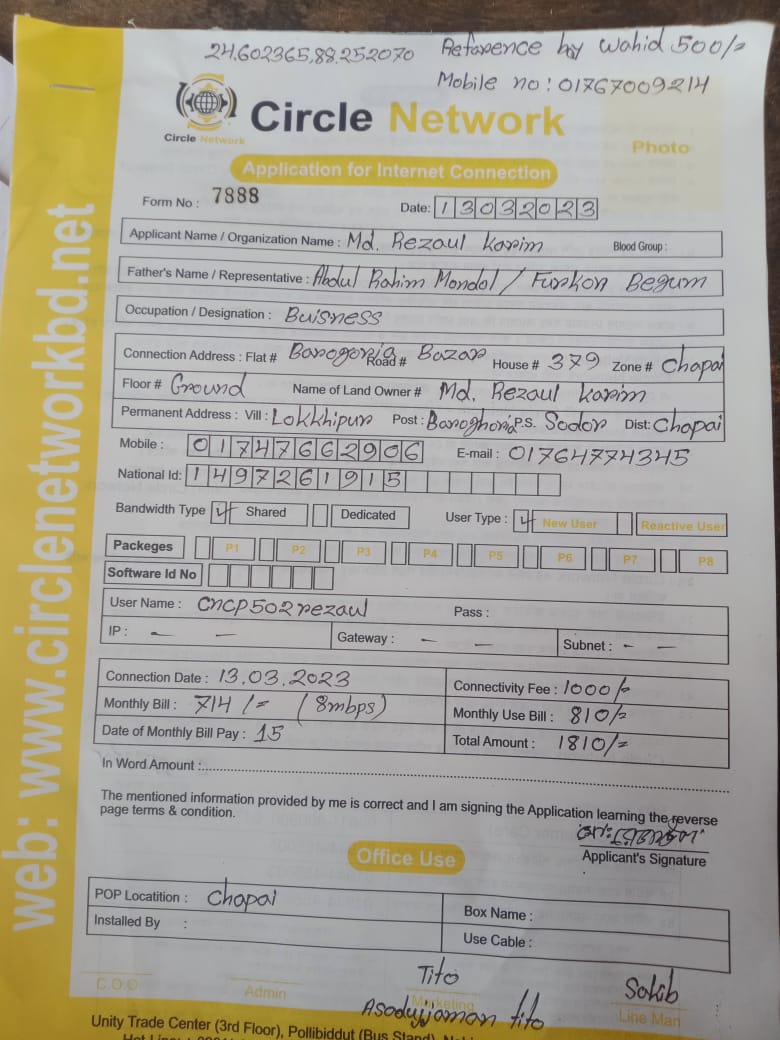 24.602365,88.252070 Reference by Wahid 500/=
Mobile no: 01767009214
Circle Network
Circle Network
Photo
Application for Internet Connection
Form No : 7888
Date: 13032023
Applicant Name / Organization Name : Md. Rezaul Karim Blood Group :
Father's Name / Representative : Abdul Rahim Mondol / Furkon Begum
Occupation / Designation : Buisness
Connection Address : Flat # Barogoria Road # Bazar House # 379 Zone # Chapai
Floor # Ground Name of Land Owner # Md. Rezaul Karim
Permanent Address : Vill : Lokkhipur Post : Baroghoria P.S. Sodor Dist: Chapai
Mobile : 01747662906 E-mail : 01764774345
National Id: 1497261915
Bandwidth Type Shared Dedicated User Type : New User Reactive User
Packeges P1 P2 P3 P4 P5 P6 P7 P8
Software Id No
User Name : CNCP502rezaul Pass :
IP : – – Gateway : – – Subnet : – –
Connection Date : 13.03.2023 Connectivity Fee : 1000/=
Monthly Bill : 714/= (8mbps) Monthly Use Bill : 810/=
Date of Monthly Bill Pay : 15 Total Amount : 1810/=
In Word Amount :
The mentioned information provided by me is correct and I am signing the Application learning the reverse
page terms & condition.
Applicant's Signature
Office Use
POP Locatition : Chapai Box Name :
Installed By : Use Cable :
Tito Sakib
C.O.O Admin Marketing Line Man
Asadujjaman tito
Unity Trade Center (3rd Floor), Pollibiddut (Bus Stand),
web: www.circlenetworkbd.net